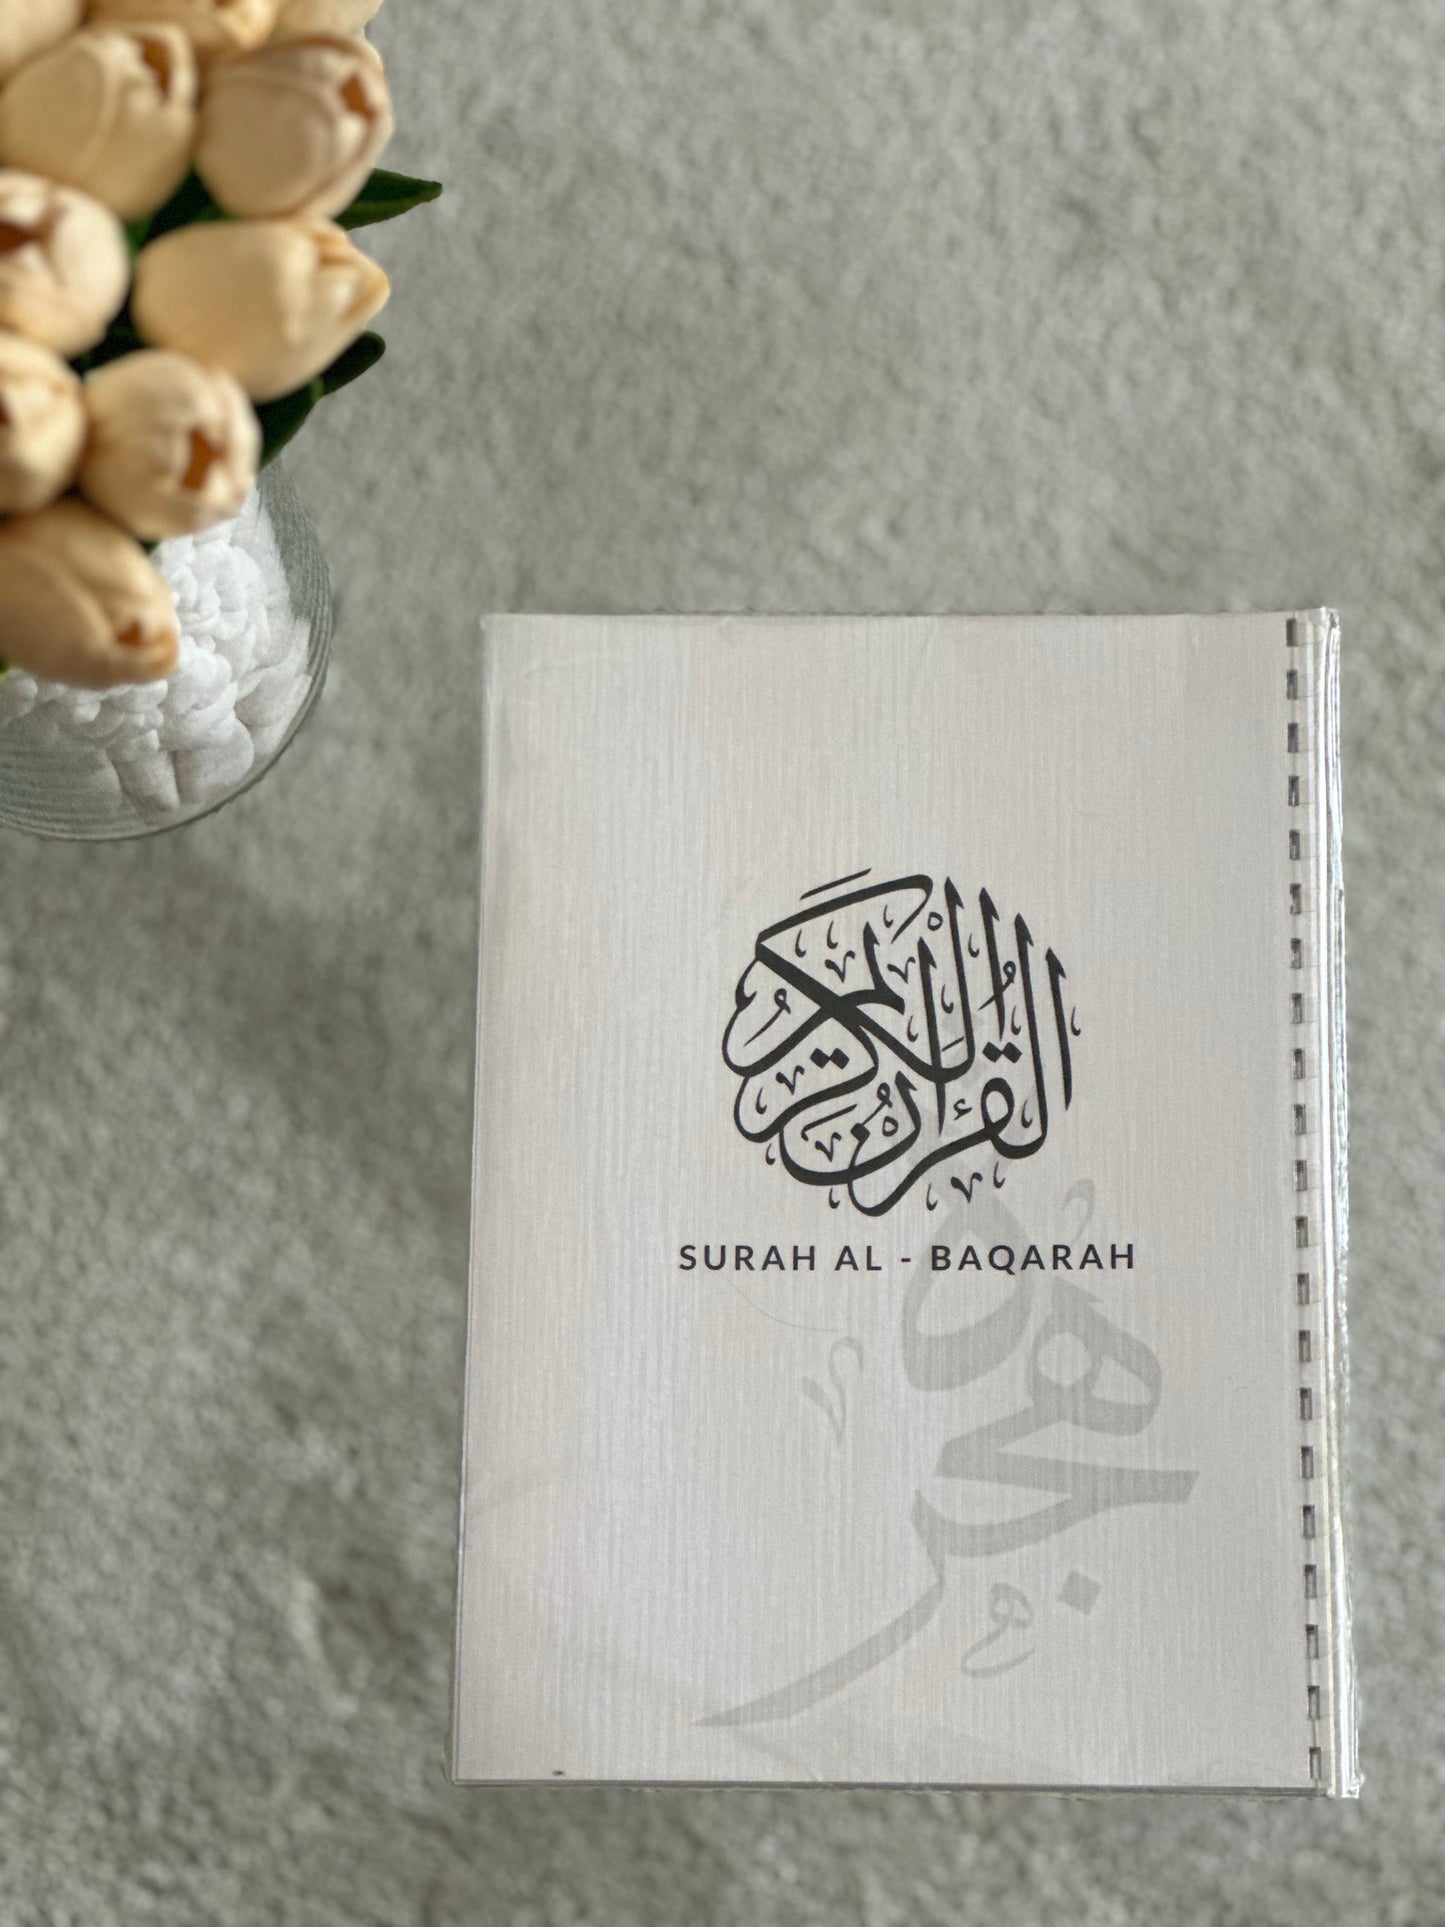 القرآن الكريم
SURAH AL - BAQARAH